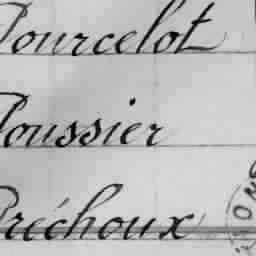 Pourcelot
Poussier
Préchoux